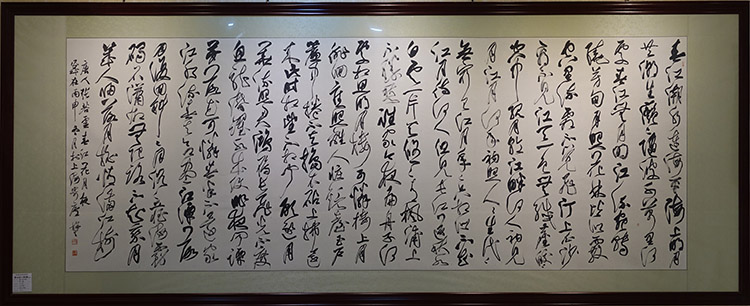 春江潮水連海平海上明月
共潮生灩灩隨波千万里何
處春江無月明江流宛轉
繞芳甸月照花林皆似霰
空里流霜不覺飛汀上白沙
看不見江天一色無纖塵皎
皎空中孤月輪江畔何人初見
月江月何年初照人人生代代
無窮已江月年年只相似不知
江月待何人但見長江送流水
白雲一片去悠悠青楓浦上
不勝愁誰家今夜扁舟子何
處相思明月樓可憐樓上月
徘徊應照離人妝鏡臺玉戶
簾中卷不去搗衣砧上拂還
來此時相望不相聞願逐月
華流照君鴻雁長飛光不度
魚龍潛躍水成文昨夜閑潭
夢落花可憐春半不還家
江水流春去欲盡江潭落
月復西斜斜月沉沉藏海霧
碣石瀟湘無限路不知乘月
幾人歸落月搖情滿江樹
唐人張若虛春江花月夜
歲在丙申五月於上海